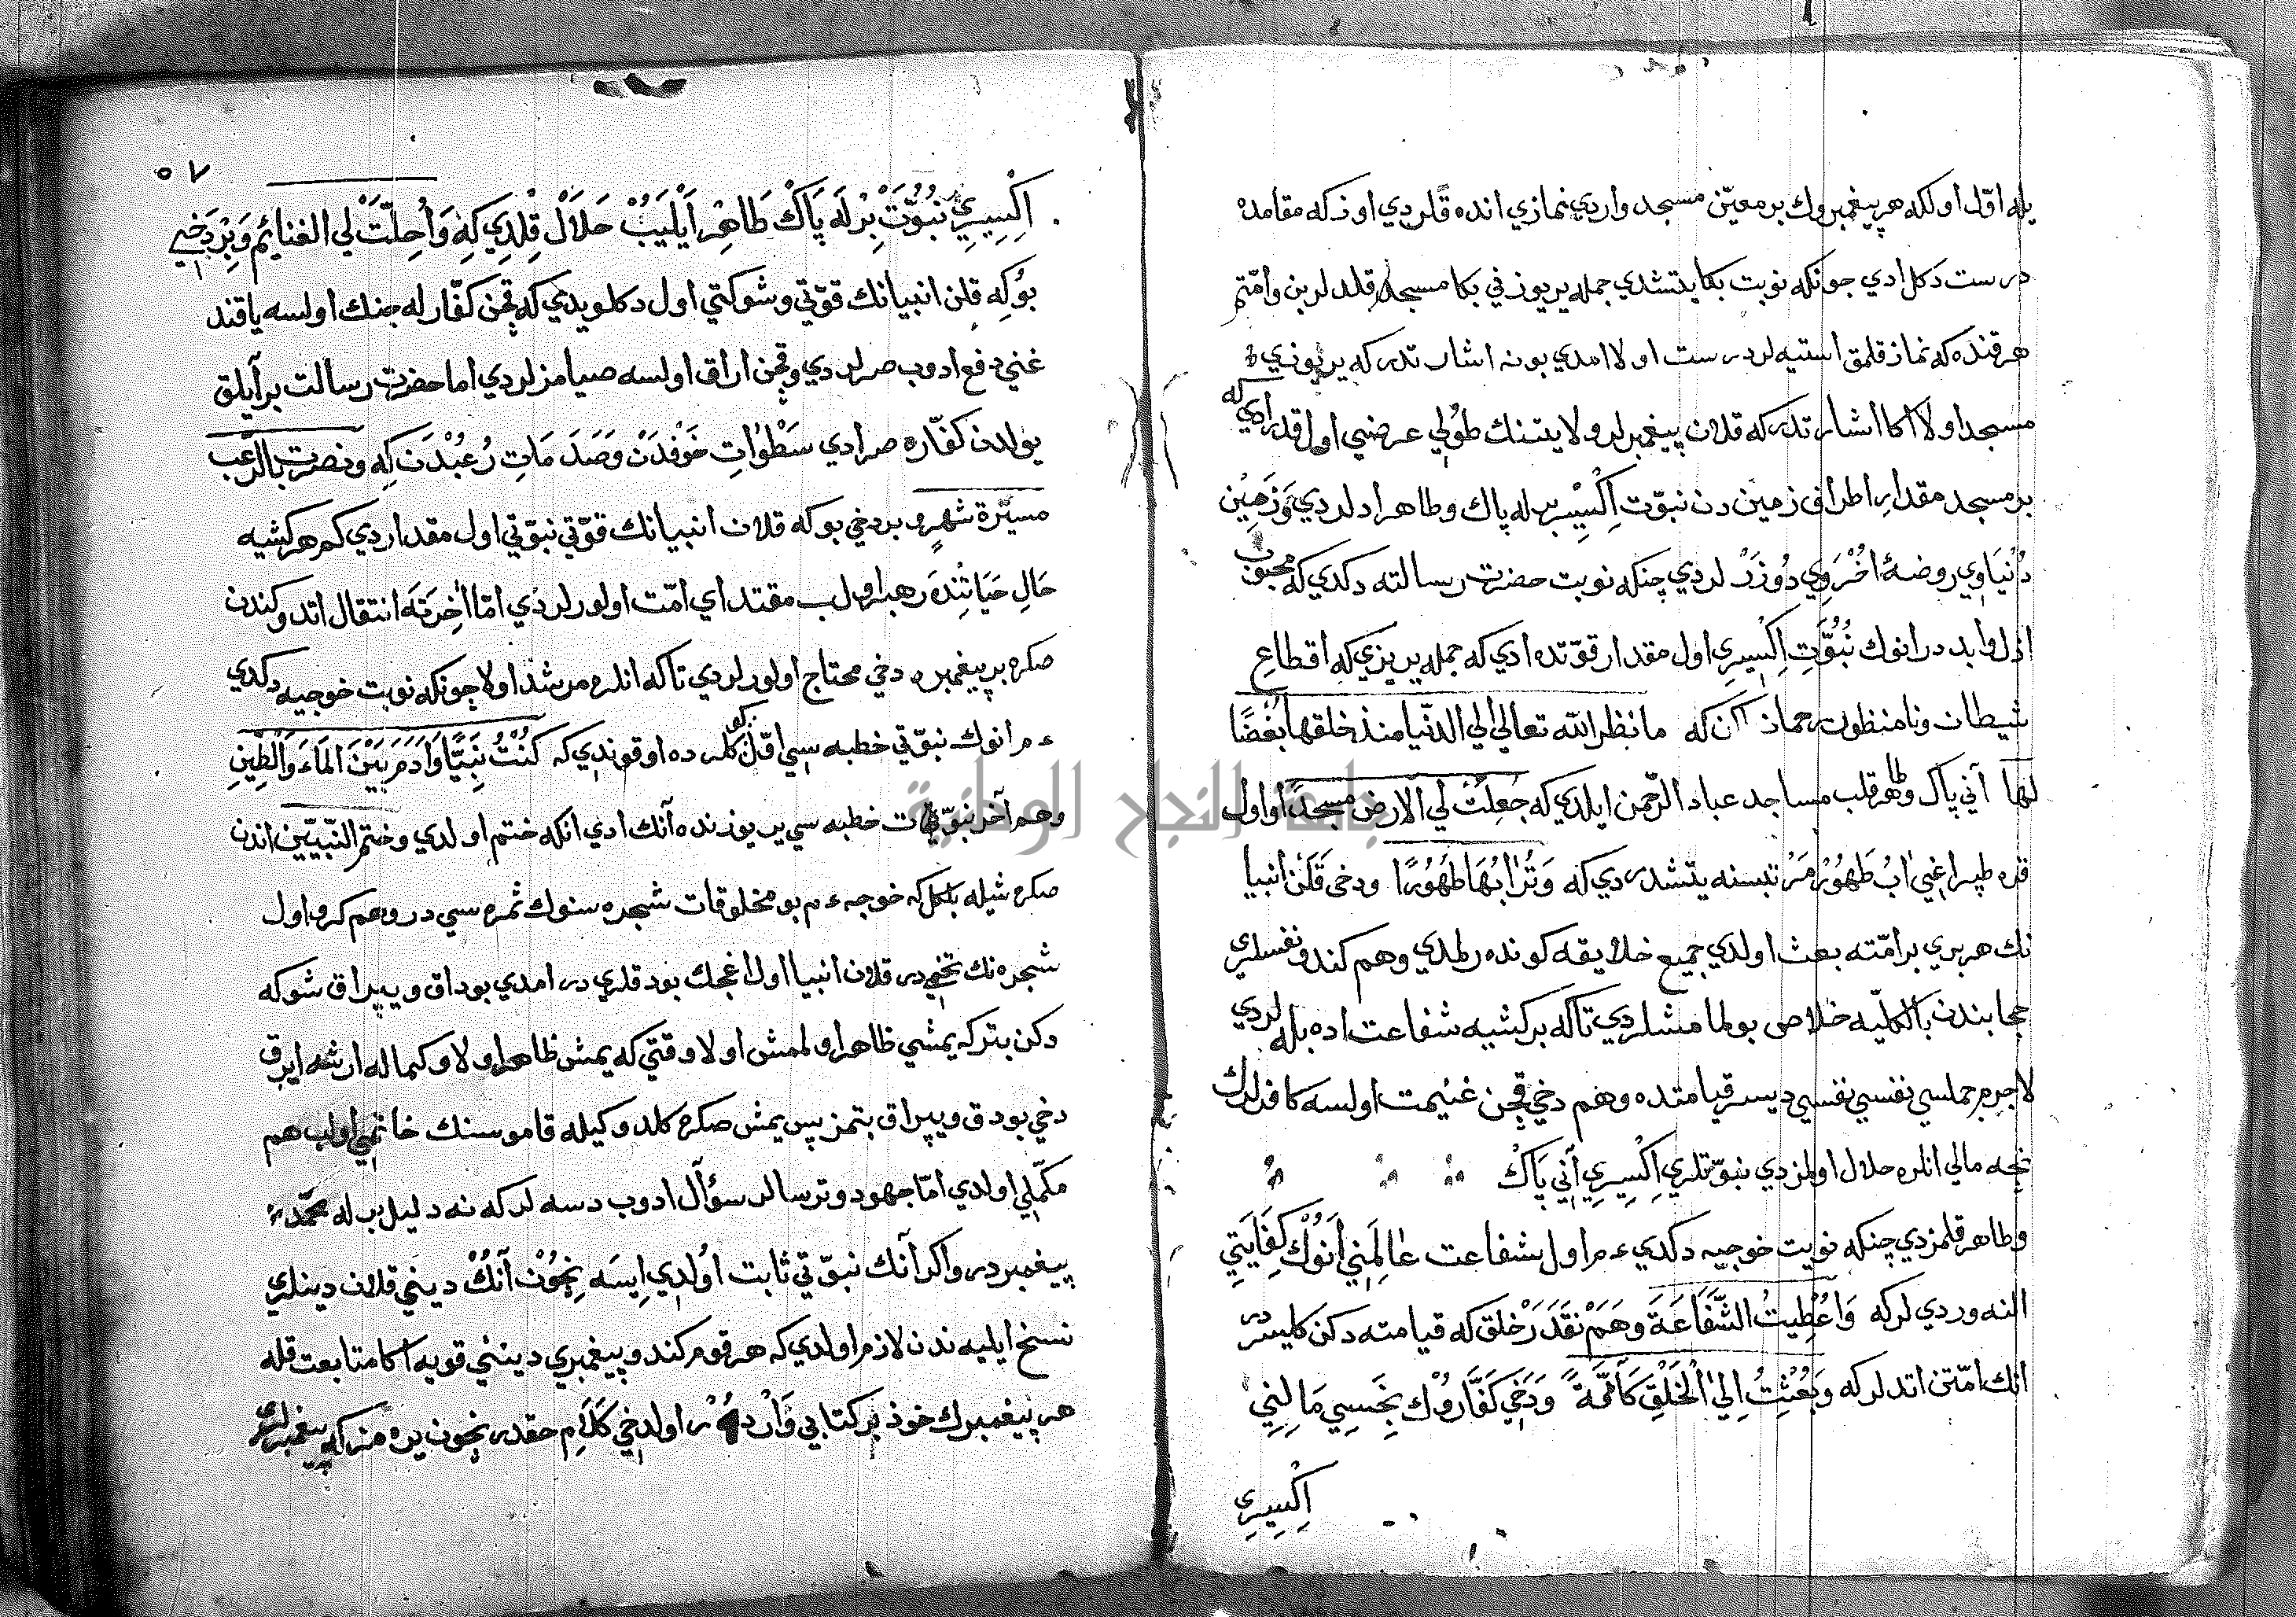 يله اوّل اولكه هر پيغمبروك بر معيّن مسجد واردي نمازي انده قلردي اوزكه مقامده
درست دكل ادي جونكه نوبت بكا يتشدي جمله ير يوزني بكا مسجد قلدلر بن وامّتم
هر قنده كه نماز قلمق استيه لر درست اولا امدي بونه اشارتدر كه ير يوزي
مسجد اولا اكا اشارتدر كه قلان پيغمبرلر ولايتنك طولي عرضي اول قدر ادي كه
بر مسجد مقدار اطراف زمين دن نبوّت اِكْسيرِ يله پاك وطاهر ادلردي وَزَمِينِ
دُنْيَاوِي روضۀ اُخْرَوِي دُوزَرْ لردي چنكه نوبت حضرت رسالته دكدي كه محبوب
ازل وابد در انوك نُبُوَّتِ اِكْسِيرِي اول مقدار قوّتده ادي كه جمله ير يزي كه اقطاعِ
شيطان ونامنظور رحمان اكن كه ما نظر الله تعالي الي الدنيا منذ خلقها بُغْضًا
لها آني پاك وطاهر قلب مساجد عباد الرّحمن ايلدي كه جُعِلَتْ لي الارض مسجدًا و اول
قره طپراغي اٰبُ طَهُورُ مَرْتبسنه يتشدردي كه وَتُرَابُهَا طَهُورًا ودخي قَلَن انبيا
نك هر بري بر امّته بعث اولدي جميع خلايقه كوندرلمدي وهم كندو نفسلري
حجابندن بالكليّه خلاص بولمامشلردي تا كه بر كشيه شفاعت اده بله لردي
لاجرم جملسي نفسي نفسي ديسر قيامتده وهم دخي قچن غنيمت اولسه كافرلرك
نجه مالي انلره حلال اولمزدي نبوّتلري اِكْسِيرِي آني پَاكْ
وطاهر قلمزدي چنكه نوبت خوجيه دكدي ءم اول شفاعت عَالَمِنِي اَنُوكْ كِفَايَتِي
النه ورديلر كه وَاُعْطِيتُ الشَّفَاعَةَ وهم نقدر خلق كه قيامته دكن كليسردر
انك امّتن اتدلر كه وَبُعِثْتُ اِلَي الْخَلْقِ كَآفَّةً وَدَخِي كَفَّارُوكْ نَجِسِي مَالِنِي
اِكْسِيرِي
٥٧
اِكْسِيرِي نُبُوَّتْ بِرْلَه پَاكْ طَاهِرْ اَيْلَيُبْ حَلَالْ قِلْدِي كِه وَاُحِلَّتْ لي الغنائم وَبِرْ دَخِي
بُو كِه قلن انبيانك قوّتي وشوكتي اول دكلويدي كه قچن كفّار له جنك اولسه ياقند
غني دفع ادوب صرلردي وقچن اراق اولسه صيامزلردي اما حضرت رسالت بر آيلق
يولدن كفّاره صرادي سَطَوَاتِ خَوْفِدَنْ وَصَدَمَاتِ رُعْبُدَنْ كِه ونصرت بالرّعب
مسيرة شهرٍ و بر دخي بو كه قلان انبيانك قوّتي نبوّتي اول مقدار ردي كم هر كشيه
حَالِ حَيَاتِنْدَه رهبر اولب مقتدا اي امّت اولورلردي امّا آخِرَتَه انتقال اتدوكندن
صكره بر پيغمبره دخي محتاج اولورلردي تا كه انلره مرشد اولا چونكه نوبت خوجيه دكدي
ءم انوك نبوّتي خطبه سي اوّلكلرده اوقوندي كه كُنْتُ نَبِيًّا وَاٰدَمَ بَيْنَ الْمَاءِ وَالطِّينِ
وهم آخر نبوّت خطبه سي ير يوزنده آنك ادي انكه ختم اولدي وختم النّبيّين اندن
صكره شيله بلكل كه خوجه ءم بو مخلوقات شجره سنوك ثمره سي در وهم كرو اول
شجره نك تخمي در قلان انبيا اول اغجك بودقلري در امدي بوداق وييراق شوكه
دكن بتر كه يمشي ظاهر اولممش اولا وقتي كه يمش ظاهر اولا وكماله ارشه ايرق
دخي بودق وييراق بتمز پس يمش صكره كلدوكيله قاموسنك خاتمي اولب هم
مكمّلي اولدي امّا جهود وترسالر سؤال ادوب دسه لر كه نه دليل برله محمّد
پيغمبردر واكر آنك نبوّتي ثابت اُولْدِي اِيسَه نِچُون آنُكْ ديني قلان دينلري
نسخ ايليه ندن لازم اولدي كه هر قوم كندو پيغمبري ديني قويه اكا متابعت قله
هر پيغمبرك خوذ بر كتابي وَارْ اولدخي كَلَامِ حقدر نچون يره منز كه پيغمبرلري